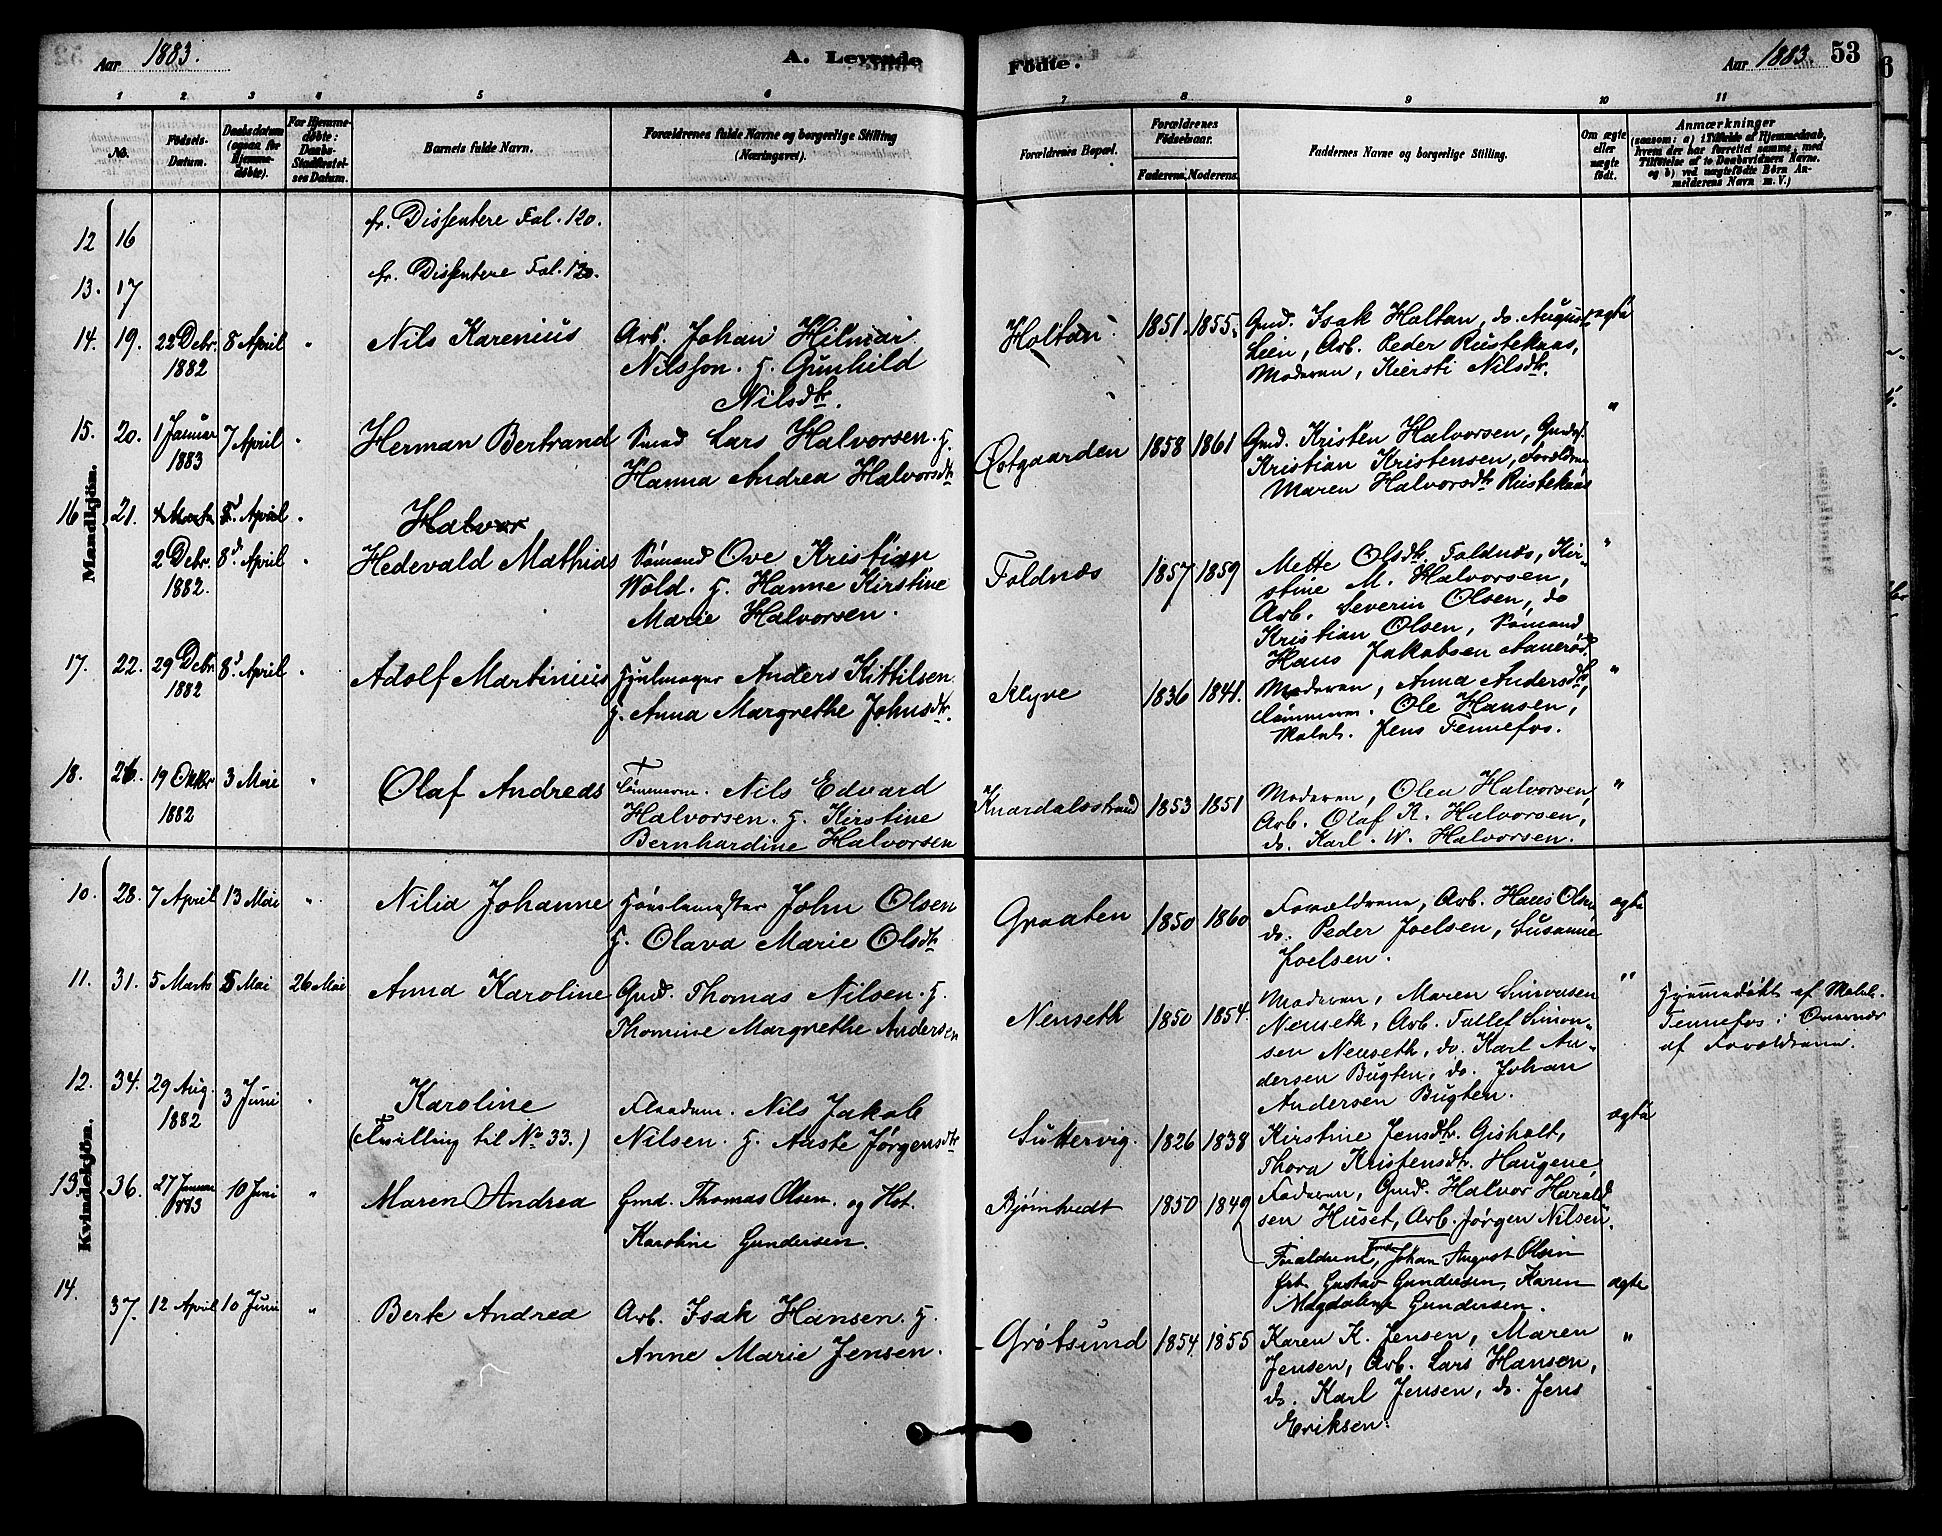 Aar 1883.
A. Levende
Födte.
Aar 1883. 53
1 2 3 4 5 6 7 8 9 10 11
No.
Födsels-Datum.
Daabsdatum (ogsaa for Hjemmedöbte).
For Hjemmedöbte: Daabs-Stadfæstelses Datum.
Barnets fulde Navn.
Forældrenes fulde Navne og borgerlige Stilling (Næringsvei).
Forældrenes Bopæl.
Forældrenes Födselsaar.
Faderens. Moderens.
Faddernes Navne og borgerlige Stilling.
Om ægte eller uægte födt.
Anmærkninger
(saasom: a) i Tilfælde af Hjemmedaab, hvem der har forrettet samme, med Tilföielse af to Daabsvidners Navne. og b) ved uægtefödte Börn Anmelderens Navn m. V.)
Mandkjön.
12 16 fr. Dissentere Fol. 120.
13. 17 fr. Dissentere Fol. 120.
14. 19. 22 Debr. 8 April " Nils Karenius Arb. Johan Hilmar Holtan 1851. 1855. Gmd. Isak Holtan, do. August ægte
1882 Nilsson. H. Gunhild Lien, Arb. Peder Rustekaas,
Nilsdtr. Moderen, Kiersti Nilsdtr.
15. 20. 1 Januar 7 April " Herman Bertrand Smed Lars Halvorsen. H. Østgaarden 1858 1861 Gmd. Kristen Halvorsen, "
1883 Hanna Andrea Halvorsdtr Kristian Kristensen, Forældrene
Maren Halvorsdtr Rustekaas
16 21. April " Halvor
2 Debr. 8d April " Hedevald Mathias Sømand Ove Kristian Foldnæs 1857 1859 Mette Olsdtr Foldnæs, Kir- "
1882. Wold. H. Hanne Kirstine stine M. Halvorsen,
Marie Halvorsen. Arb. Severin Olsen, do
Kristian Olsen, Sømand
Hans Jakobsen
17. 22. 29 Debr. 8d April " Adolf Martinius Hjulmager Anders Kittilsen. Klyve 1836 1841. Moderen, Anna Andersdtr, "
1882 H. Anna Margrethe Johnsdtr. Tømmerm. Ole Hansen,
Jens Tennefos.
18. 26. 19 Oktbr 3 Mai " Olaf Andreas Tømmerm. Nils Edvard Knardalsstrand 1853 1851 Moderen, Olea Halvorsen, "
1882 Halvorsen. H. Kirstine Arb. Olaf N. Halvorsen,
Bernhardine Halvorsen do. Karl. W. Halvorsen.
Kvindekjön.
10. 28. 7 April 13 Mai " Nilia Johanne John Olsen Graaten 1850 1860 Forældrene, Arb. Hans Olsen ægte
H. Olava Marie Olsdtr do. Peder Joelsen, Susanne
Joelsen.
11. 31. 5 Marts 5 Mai 26 Mai Anna Karoline Gmd. Thomas Nilsen. H. Nenseth 1850 1854 Moderen, Maren Simonsen " Hjemmedøbt af
Thomine Margrethe Andersen Nenseth, Arb. Tollef Simon- Tennefos i Overvær
sen Nenseth, do. Karl An- af Forældrene.
dersen Bugten, do. Johan
Andersen Bugten.
12. 34. 29 Aug. 3 Juni " Karoline Nils Jakob ægte
1882 (Tvilling til No 33.) Nilsen. H. Aaste Jørgensdtr Suttervig. 1826 1838 Kirstine Jensdtr. Gisholt,
Thora Kristensdtr. Haugene,
13. 36. 27 Januar 10 Juni " Maren Andrea Gmd. Thomas Olsen. og Hst. Bjørntvedt 1850 1849 Faderen, Gmd. Halvor Harald
1883 Karoline Gundersen. sen Huset, Arb. Jørgen Nilsen.
Forældrene, Gmd. Johan August Olsen
Gustav Gundersen, Karen ægte
Magdalene Gundersen.
14. 37. 12 April 10 Juni " Berte Andrea Arb. Isak Hansen. H. Grøtsund 1854 1855 Karen K. Jensen, Maren "
Anne Marie Jensen. Jensen, Arb. Lars Hansen,
do. Karl Jensen, do. Jens
Eriksen.